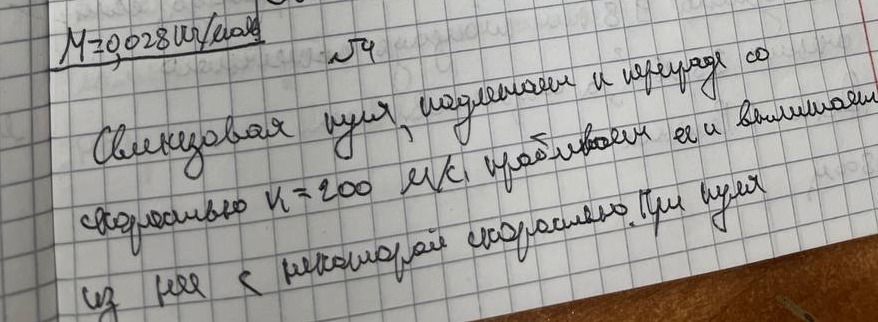 M=0,028кг/моль
№4
Свинцовая пуля, подлетает к преграде со
скоростью v₁=200 м/с, пробивает ее и вылетает
из нее с некоторой скоростью. При пуля